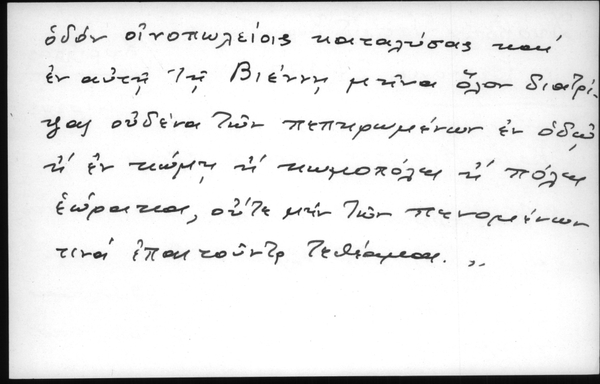 ὁδόν οἰνοπωλείοις καταλύσας καί
ἐν αὐτῇ τῇ Βιέννῃ μῆνα ὅλον διατρί-
ψας οὐδένα τῶν πεπηρωμένων ἐν ὁδῷ
ἤ ἐν κώμῃ ἤ κωμοπόλει ἤ πόλει
ἑώρακα, οὔτε μήν τῶν πενομένων
τινά ἐπαιτοῦντα τεθέαμαι.